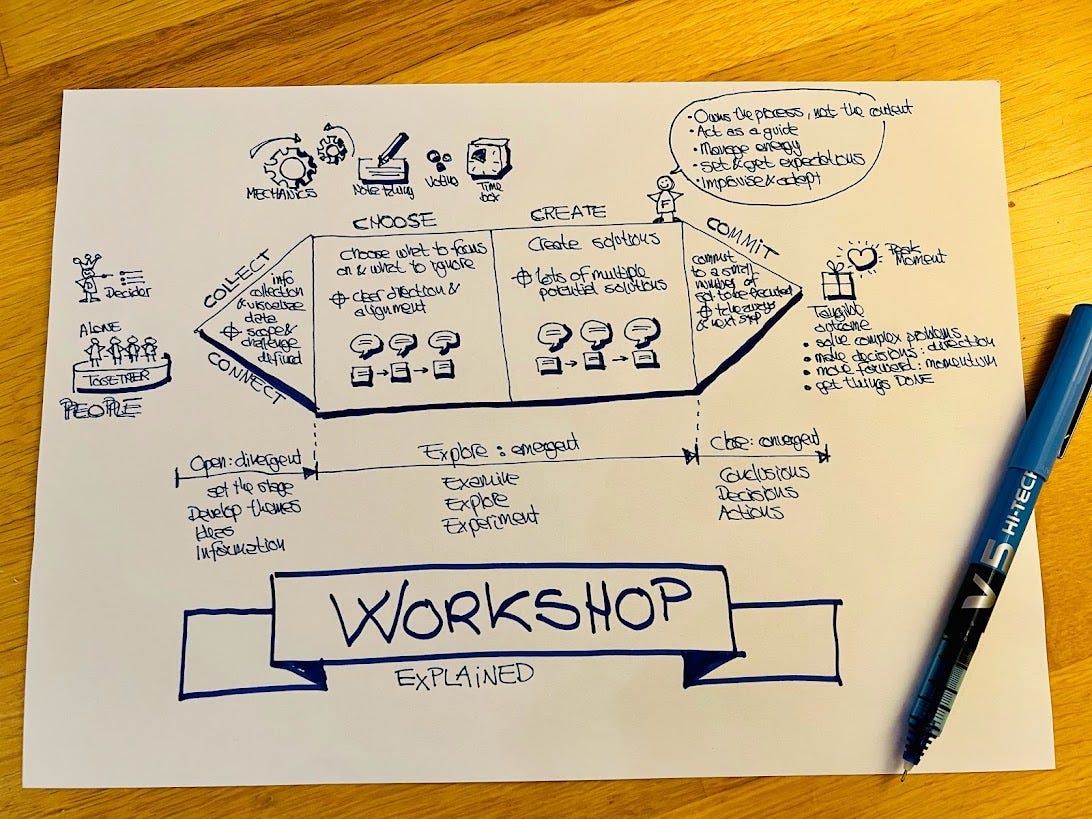 MECHANICS
Note taking
Voting
Time
box
• Owns the process, not the content
• Act as a guide
• Manage energy
• set & get expectations
• Improvise & adapt
F
COLLECT
CHOOSE
CREATE
COMMIT
CONNECT
Decidor
ALONE
TOGETHER
PEOPLE
info
collection
& visualize
data
scope &
challenge
defined
Choose what to focus
on & what to ignore
clear direction &
alignment
Create solutions
lots of multiple
potential solutions
commit
to a small
number of
sol. to be executed
takeaways
& next step
Peak
Moment
Tangible
outcome
• solve complex problems
• make decisions : direction
• move forward : momentum
• get things DONE
Open : divergent
set the stage
Develop themes
Ideas
Information
Explore : emergent
Examine
Explore
Experiment
Close : convergent
Conclusions
Decisions
Actions
WORKSHOP
EXPLAINED
V5 HI-TECP